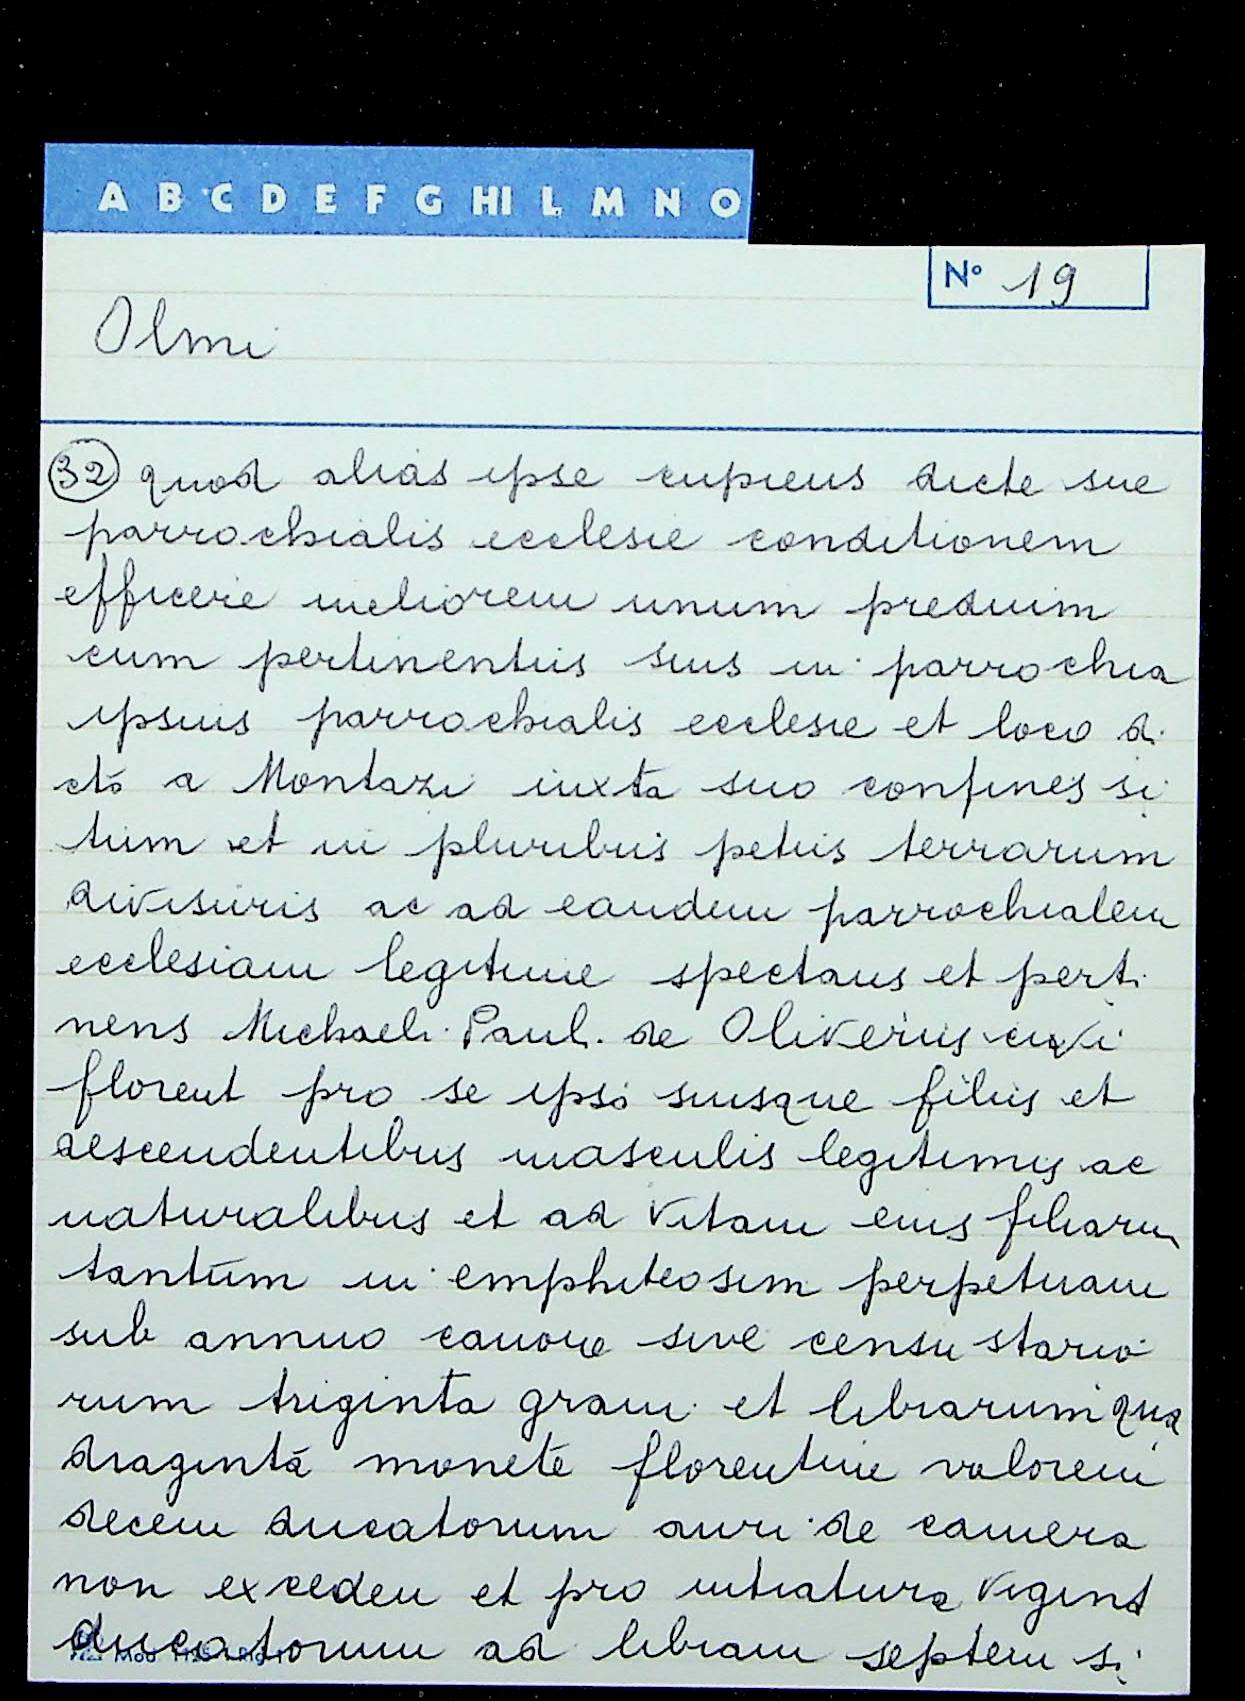 A B C D E F G HI L M N O
N° 19
Olmi
32 quod alias ipse cupiens dicte sue
parrochialis ecclesie conditionem
efficere meliorem unum predium
cum pertinentiis suis in parrochia
ipsius parrochialis ecclesie et loco di
cto a Montazi iuxta suo confines si
tum et in pluribus petiis terrarum
divisuris ac ad eandem parrochialem
ecclesiam legitime spectans et perti
nens Michaeli Paul. de Oliveriis civi
florent pro se ipso suisque filiis et
descendentibus masculis legitimis ac
naturalibus et ad vitam eius filiarum
tantum in emphiteosim perpetuam
sub annuo canone sive censu stario
rum triginta grani et librarum qua
draginta monete florentine valorem
decem ducatorum auri de camera
non exceden et pro intratura vigint
ducatorum ad libram septem si